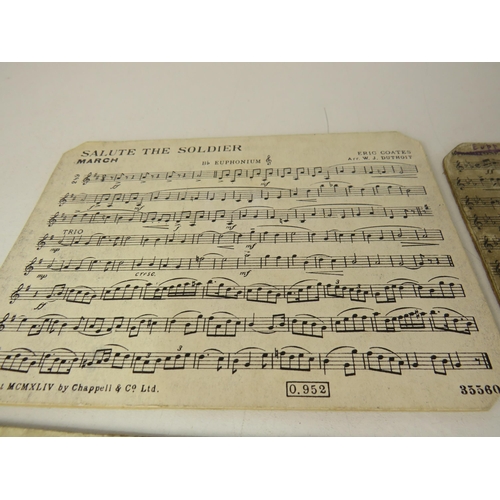 SALUTE THE SOLDIER
MARCH
Bb EUPHONIUM
ERIC COATES
Arr. W. J. DUTHOIT
ff
mf
mf
TRIO
mp
mf
mp
cresc.
mf
ff
3
3
3
MCMXLIV by Chappell & Co. Ltd.
0.952
35560